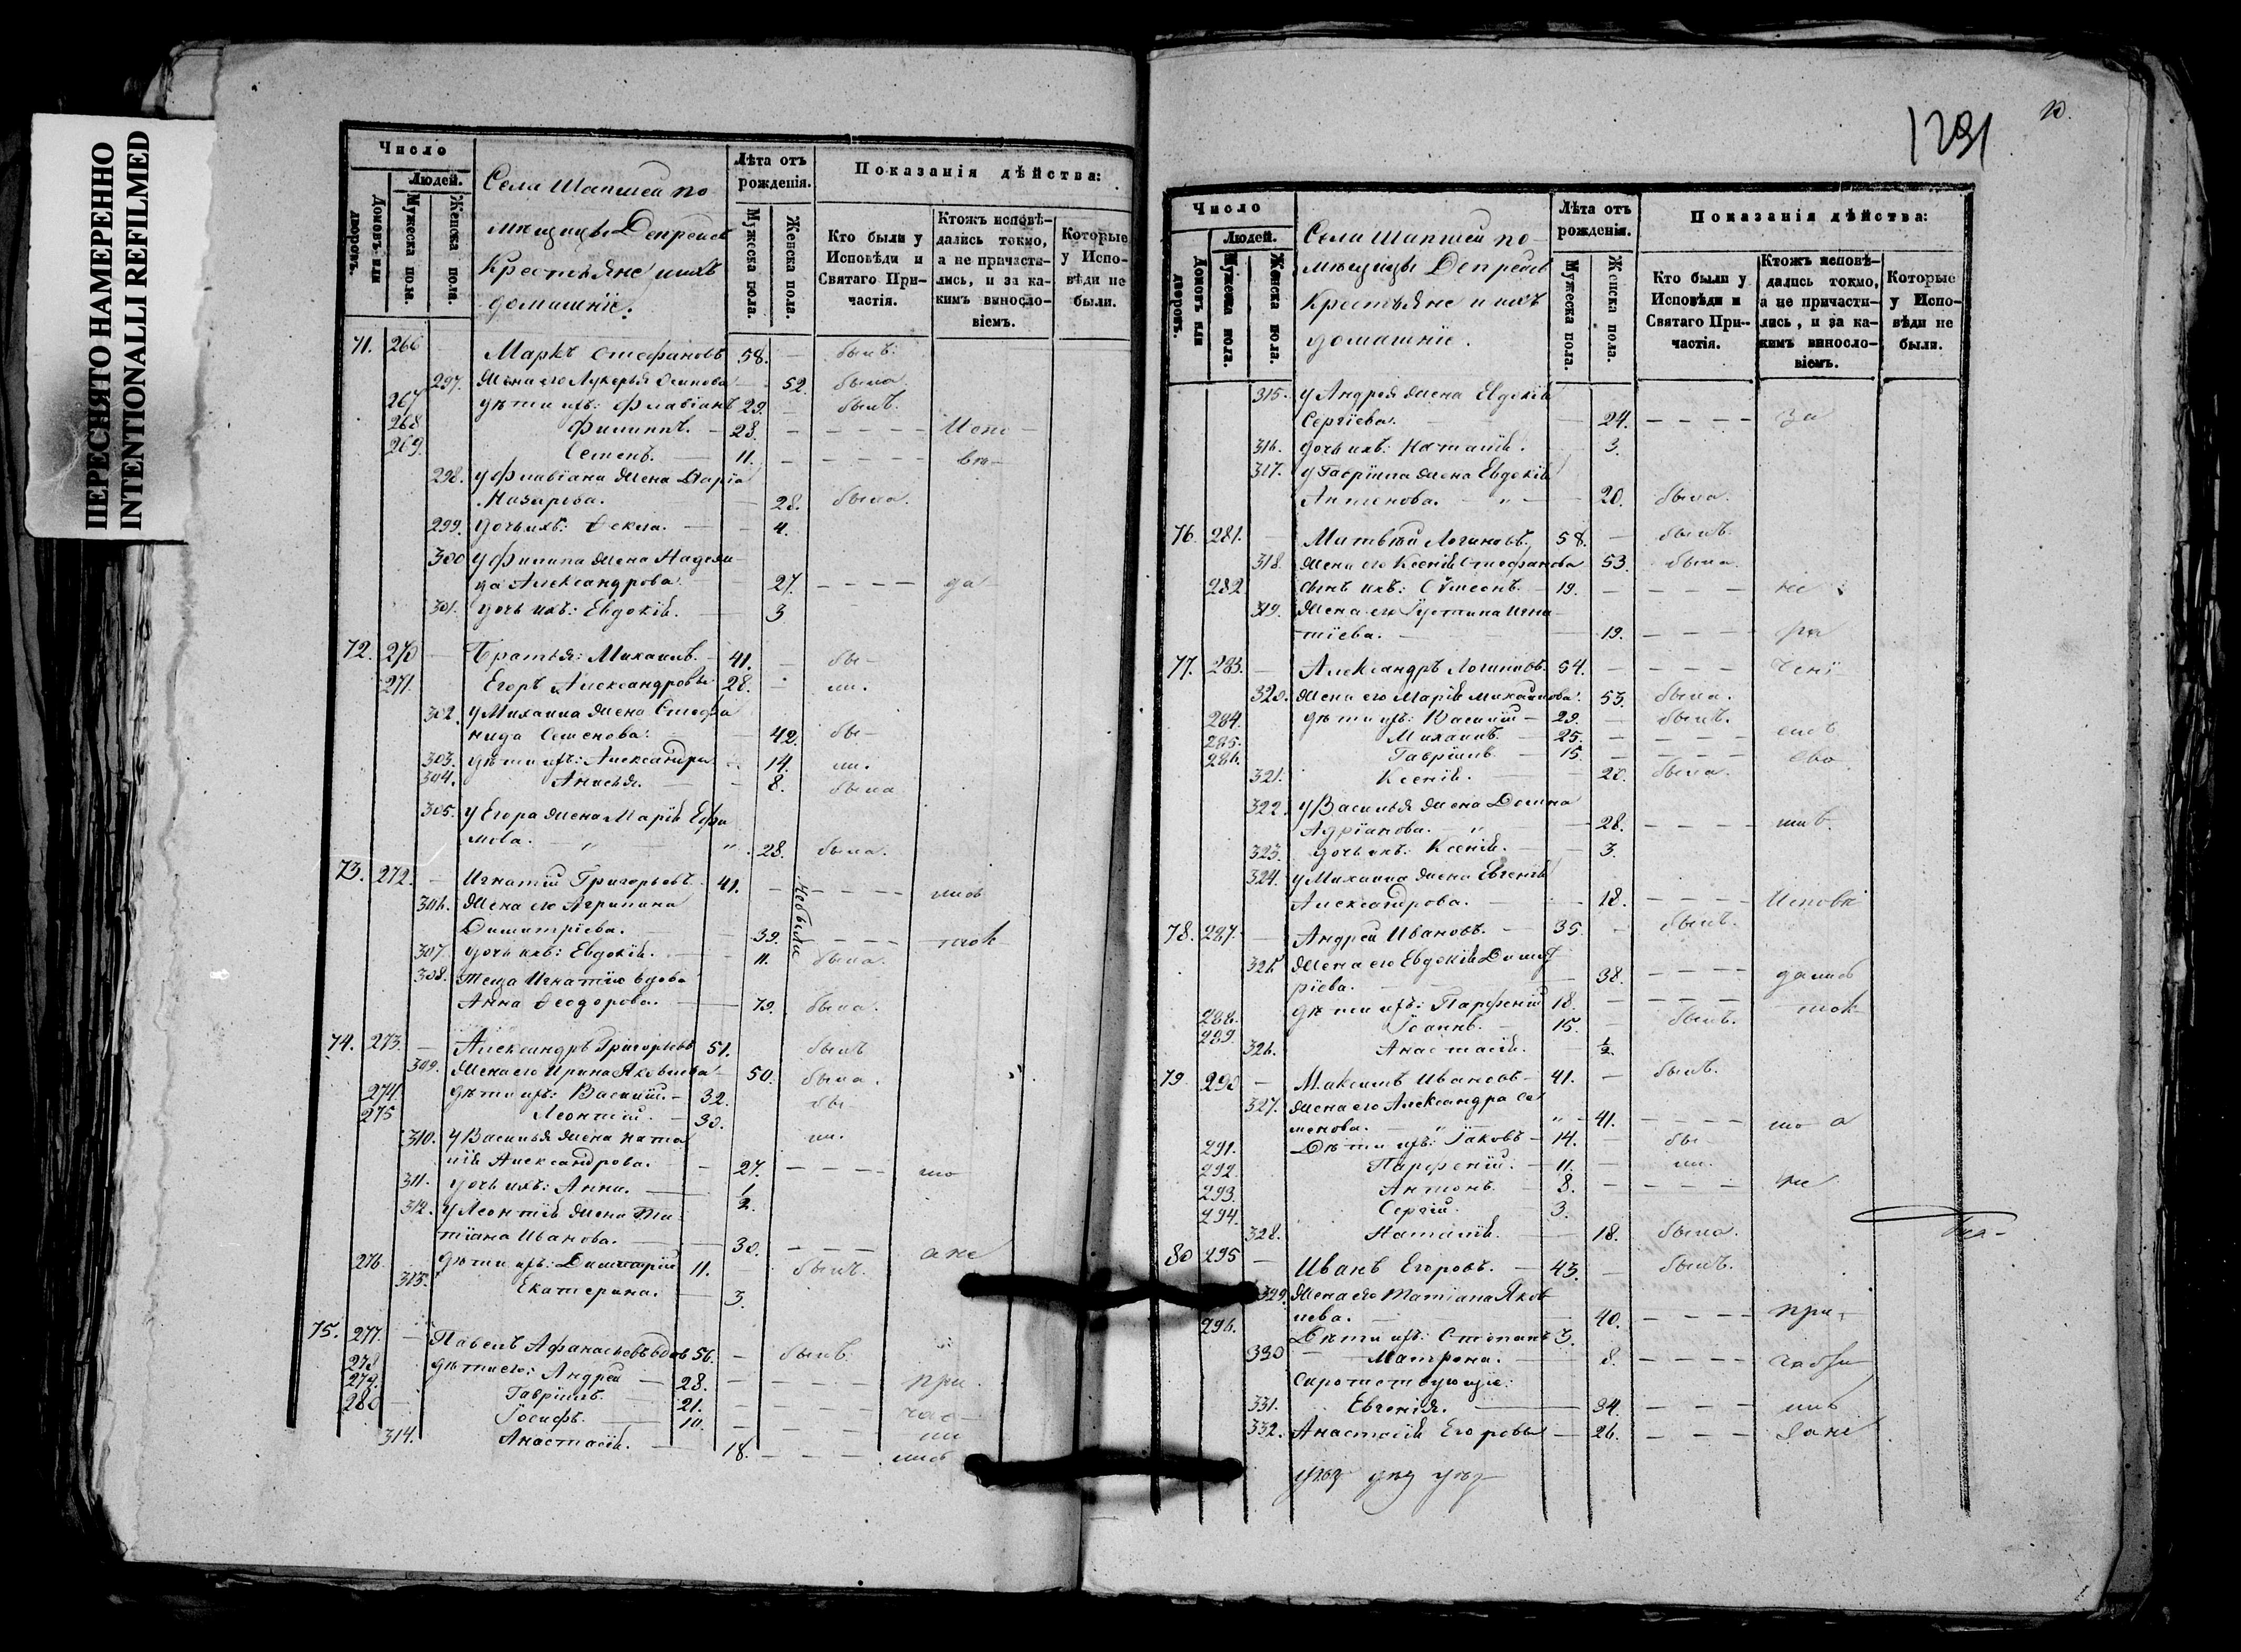 ПЕРЕСНЯТО НАМЕРЕННО
INTENTIONALLI REFILMED
Число
Людей.
Домовъ или дворовъ.
Мужеска пола.
Женска пола.
Села Шапшей по
мѣщицы Депрейсъ
Крестьяне и ихъ
домашніе.
Лѣта отъ рожденія.
Мужеска пола.
Женска пола.
Показанія дѣйства:
Кто были у Исповѣди и Святаго Причастія.
Ктожъ исповѣдались токмо, а не причастились, и за какимъ винословіемъ.
Которые у Исповѣди не были.
71. 266 Маркъ Стефановъ 58. — былъ.
297. Жена его Лукерья Осипова 52. была.
267 дѣти ихъ: Флавіанъ 29. — былъ.
268 Филиппъ. — 23. — — — — Испо—
269. Семенъ. — 11. — — — — вѣ—
298. у Флавіана жена Дарія
Назарова. — 28. была.
299. дочь ихъ: Фекла. — 4.
300 у Филипа жена Надеж
да Александрова. — 27. — — — — да—
301. дочь ихъ: Евдокія. — 3
72. 270 — Братья: Михаилъ. — 41. — бы—
271. Егоръ Александровы 28. — ли.
302. у Михаила жена Стефа
нида Семенова. — 42. бы—
303. дѣти ихъ: Александра — 14. ли.
304. Анисья. — 8. была
305. у Егора жена Марія Ефи
мова. — " — " 28. была.
73. 272. — Игнатій Григорьевъ. 41. — — — — лись
306. Жена его Агрипина
Димитріева. — 39. — — — — ток
не были
307. дочь ихъ: Евдокія. — 11. была.
308. теща Игнатію вдова
Анна Феодорова. — 79. была.
74. 273. — Александръ Григорьевъ 51. былъ
309. Жена его Ирина Яковлева — 50. была.
274. дѣти ихъ: Василій. — 32. бы
275 Леонтій. — 30. ли.
310. у Василья жена Ната
лія Александрова. — 27. — — — — мо
311. дочь ихъ: Анна. — 1/2.
312. у Леонтія жена Та
тіана Иванова. — 30. — — — а не
276. дѣти ихъ: Димитрій 11. — былъ.
313. Екатерина. — 3.
75. 277. — Павелъ Афанасьевъ вдов 56. — былъ.
278 дѣти его: Андрей — 28. — — — — при
279. Гавріилъ. — 21. — — — — час—
280 — Іосифъ. — 10. — — — ти
314. Анастасія. — 18. — — — лись
1291
Число
Людей.
Домовъ или дворовъ.
Мужеска пола.
Женска пола.
Села Шапшей по—
мѣщицы Депрейсъ
Крестьяне и ихъ
домашніе.
Лѣта отъ рожденія.
Мужеска пола.
Женска пола.
Показанія дѣйства:
Кто были у Исповѣди и Святаго При--частія.
Ктожъ исповѣдались токмо, а не причастились, и за какимъ винословіемъ.
Которые у Исповѣди не были.
315. у Андрея жена Евдокія
Сергіева. — 24. — — — — за
316. дочь ихъ: Наталія. — 3.
317. у Гавріила жена Евдокія
Антонова. — " — 20. была.
76. 281. — Матвѣй Логиновъ. 58. — былъ.
318. Жена его Ксенія Стефанова 53. была.
282 сынъ ихъ: Сѷмеонъ. — 19. — — — — не
319. Жена его Іустина Игна
тіева. — 19. — — — ра
77. 283. — Александръ Логиновъ. 54. — — — — чені
320. Жена его Марія Михайлова. 53. была.
284. дѣти ихъ: Василій — 29. — былъ.
285. Михаилъ. — 25. — — — — емъ
286. Гавріилъ. — 15. — — — — сво
321. Ксенія. — 20. была.
322. у Василья жена Домна
Адріанова. — " — 28. — — — — имъ.
323. дочь ихъ: Ксенія. — 3.
324. у Михаила жена Евгенія
Александрова. — 18. — — — — Исповѣ
78. 287. — Андрей Ивановъ. — 35. — былъ.
325. Жена его Евдокія Димит
ріева. — 38. — — — — дались
288. дѣти ихъ: Парфеній 18. — — — — ток
289. Іоаннъ. — 15. — былъ.
326. Анастасія. — 1/2.
79. 290 — Максимъ Ивановъ — 41. — былъ.
327. Жена его Александра Се
менова. — " — 41. — — — — мо а
291. Дѣти ихъ: Іаковъ — 14. — бы
292. Парфеній. — 11. — ли.
293. Антонъ. — 8. — — — — не
294. Сергій. — 3.
328. Наталія. — 18. была.
80 295 — Иванъ Егоровъ. — 43. — былъ.
329. Жена его Татіана Яков
лева. — 40. — — — — при—
296. Дѣти ихъ: Степанъ 3.
330 — Матрона. — 8. — — — —
Сиротствующіе:
331. Евгенія. — 34. — — — —
332. Анастасія Егоровы — 26. — — — — за не